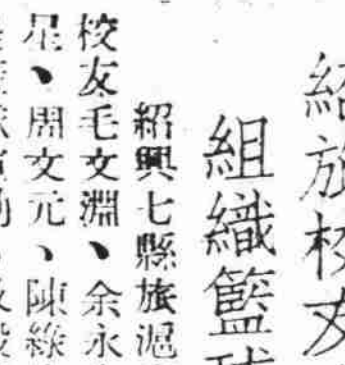 紹旅校友
組織籃球
紹興七縣旅滬
校友毛文淵、余永
星、周文元、陳綠